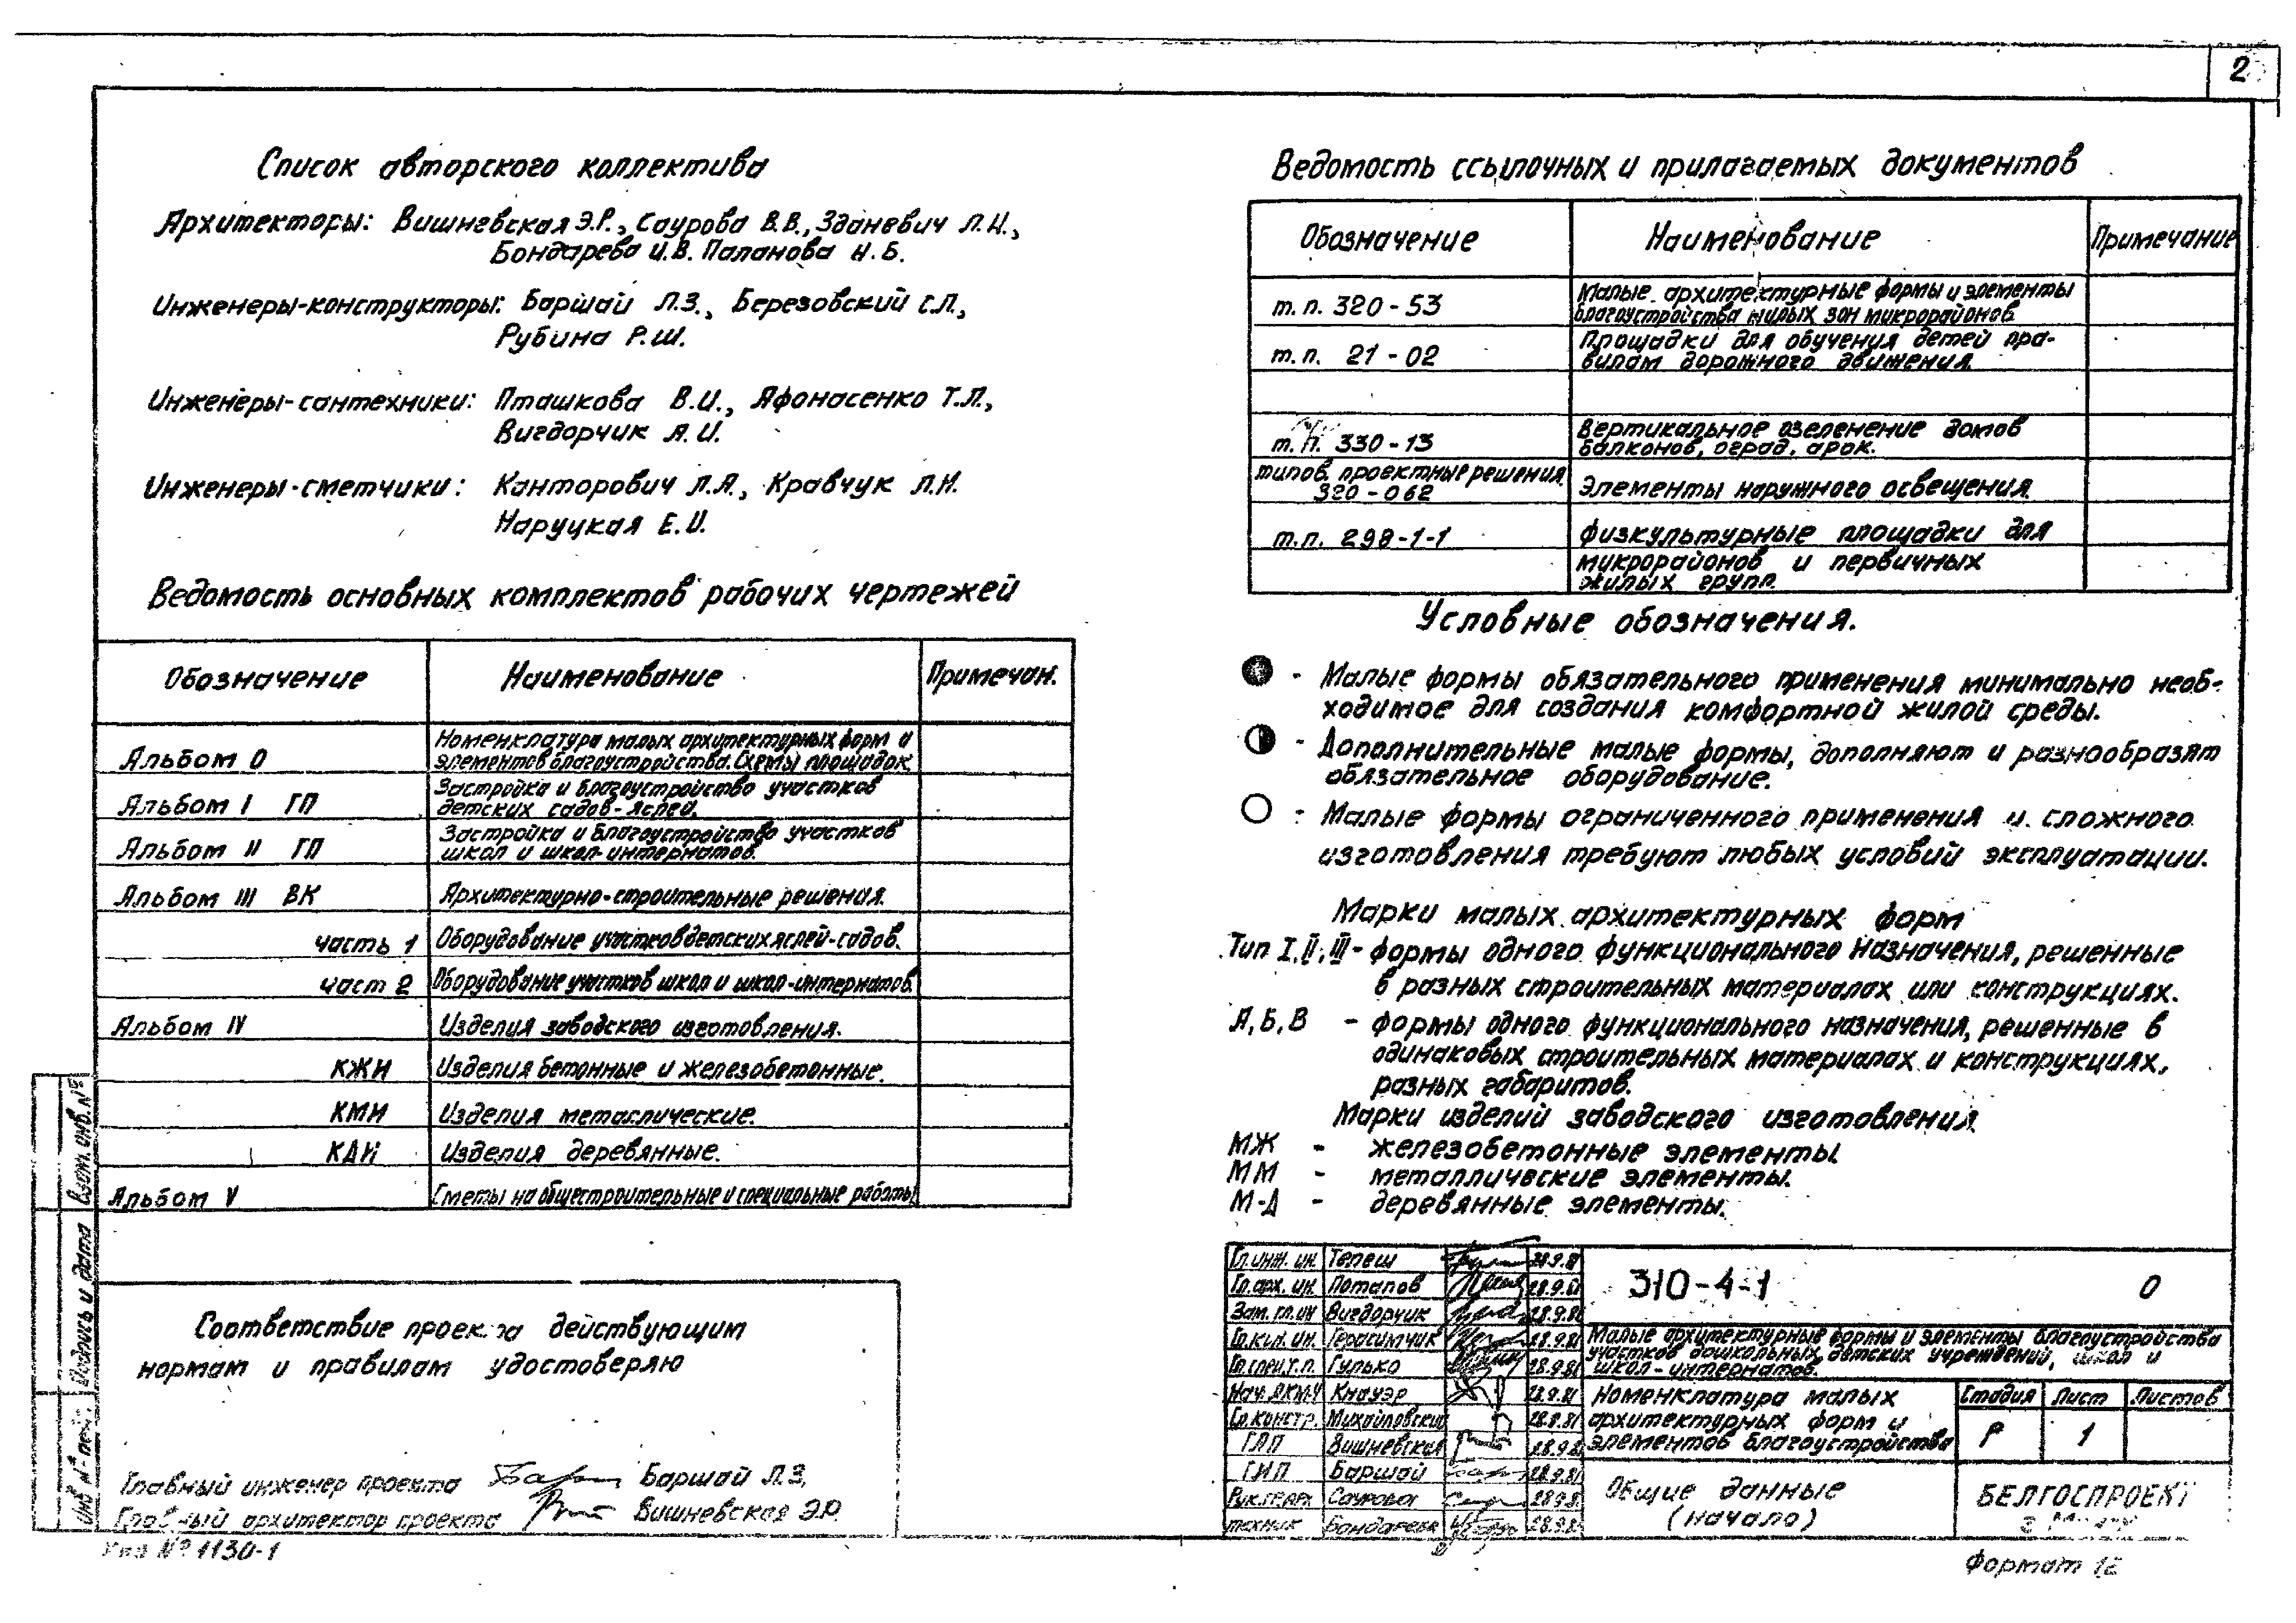 2
Список авторского коллектива
Архитекторы: Вишневская Э.Р., Саурова В.В., Зданевич Л.Н.,
Бондарева И.В. Паланова Н.Б.
Инженеры-конструкторы: Баршай Л.З., Березовский С.Л.,
Рубина Р.Ш.
Инженеры-сантехники: Пташкова В.И., Афонасенко Т.Л.,
Вигдорчик А.И.
Инженеры-сметчики: Канторович Л.А., Кравчук Л.Н.
Наруцкая Е.И.
Ведомость основных комплектов рабочих чертежей
Обозначение Наименование Примечан.
Альбом 0 Номенклатура малых архитектурных форм и
элементов благоустройства. Схемы площадок
Альбом I ГП Застройка и благоустройство участков
детских садов-яслей.
Альбом II ГП Застройка и благоустройство участков
школ и школ-интернатов.
Альбом III ВК Архитектурно-строительные решения.
часть 1 Оборудование участков детских яслей-садов.
част 2 Оборудование участков школ и школ-интернатов
Альбом IV Изделия заводского изготовления.
КЖИ Изделия бетонные и железобетонные.
КМИ Изделия металлические.
КДИ Изделия деревянные.
Альбом V Сметы на общестроительные и специальные работы
Соответствие проекта действующим
нормам и правилам удостоверяю
Главный инженер проекта Баршай Л.З.
Главный архитектор проекта Вишневская Э.Р.
Инв № подл. Подпись и дата Взам. инв. №
№ 1130-1
Ведомость ссылочных и прилагаемых документов
Обозначение Наименование Примечание
т.п. 320-53 Малые архитектурные формы и элементы
благоустройства жилых зон микрорайонов
т.п. 21-02 Площадки для обучения детей пра-
вилам дорожного движения.
т.п. 330-13 Вертикальное озеленение домов
балконов, оград, арок.
типов. проектные решения
320-062 Элементы наружного освещения
т.п. 298-1-1 Физкультурные площадки для
микрорайонов и первичных
жилых групп.
Условные обозначения.
- Малые формы обязательного применения минимально необ-
ходимое для создания комфортной жилой среды.
- Дополнительные малые формы, дополняют и разнообразят
обязательное оборудование.
- Малые формы ограниченного применения и сложного
изготовления требуют любых условий эксплуатации.
Марки малых архитектурных форм
Тип I, II, III - формы одного функционального назначения, решенные
в разных строительных материалах или конструкциях.
А, Б, В - формы одного функционального назначения, решенные в
одинаковых строительных материалах и конструкциях,
разных габаритов.
Марки изделий заводского изготовления
МЖ - железобетонные элементы
ММ - металлические элементы.
М-Д - деревянные элементы.
Гл. инж. ин. Тепеш 28.9.81
Гл. арх. ин. Потапов 28.9.81
Зам. гл. ин Вигдорчик 28.9.81
Гл. кл. ин. Герасимчик 28.9.81
Гл. спец. т.п. Гулько 28.9.81
Нач. АКМ Кнауэр 28.9.81
Гл. констр. Михайловский 28.9.81
ГАП Вишневская 28.9.81
ГИП Баршай 28.9.81
Рук. гр. арх Саурова 28.9.81
техник Бондарева 28.9.81
310-4-1 0
Малые архитектурные формы и элементы благоустройства
участков дошкольных детских учреждений, школ и
школ-интернатов.
Номенклатура малых
архитектурных форм и
элементов благоустройства
Стадия Лист Листов
Р 1
Общие данные
(начало)
БЕЛГОСПРОЕКТ
Формат 12